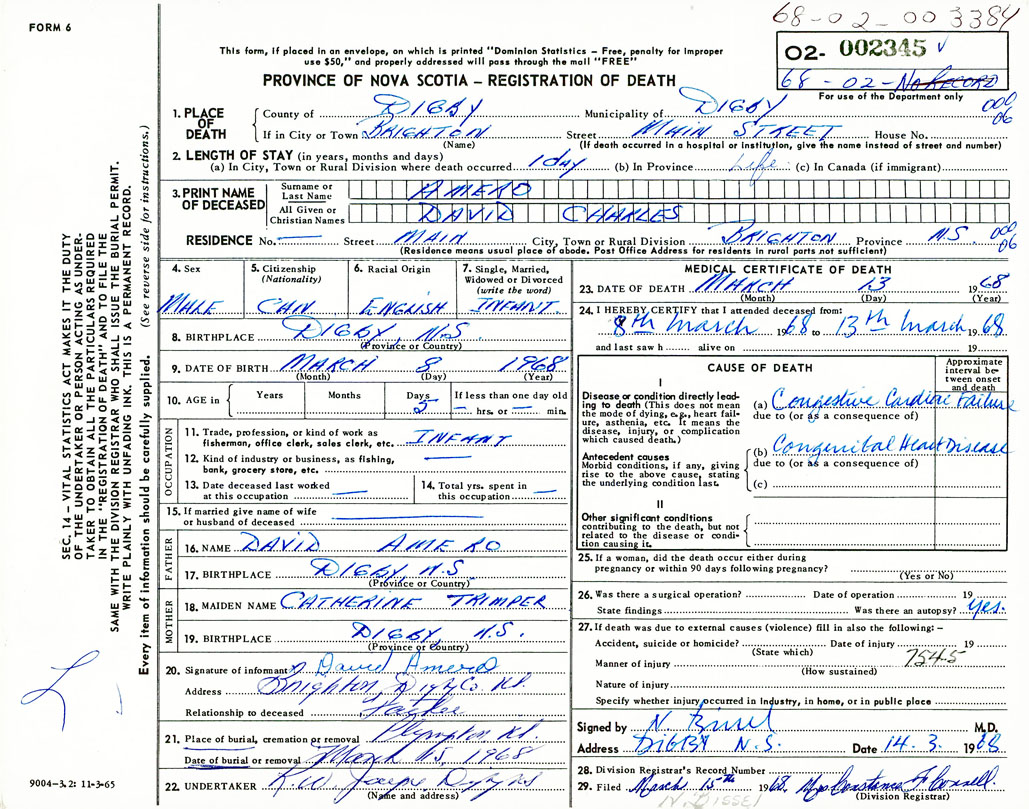 FORM 6
68-02-003384
This form, if placed in an envelope, on which is printed "Dominion Statistics – Free, penalty for improper
use $50," and properly addressed will pass through the mail "FREE"
02- 002345
68-02-No RECORD
For use of the Department only
PROVINCE OF NOVA SCOTIA – REGISTRATION OF DEATH
1. PLACE OF DEATH County of DIGBY Municipality of DIGBY 000 06
If in City or Town BRIGHTON Street MAIN STREET House No.
(Name) (If death occurred in a hospital or institution, give the name instead of street and number)
2. LENGTH OF STAY (in years, months and days)
(a) In City, Town or Rural Division where death occurred 1 day (b) In Province Life (c) In Canada (if immigrant)
3. PRINT NAME OF DECEASED
Surname or Last Name AMERO
All Given or Christian Names DAVID CHARLES
RESIDENCE No. — Street MAIN City, Town or Rural Division BRIGHTON Province N.S. 000 06
(Residence means usual place of abode. Post Office Address for residents in rural parts not sufficient)
4. Sex MALE
5. Citizenship (Nationality) CAN
6. Racial Origin ENGLISH
7. Single, Married, Widowed or Divorced (write the word) INFANT.
8. BIRTHPLACE DIGBY, N.S.
(Province or Country)
9. DATE OF BIRTH MARCH 8 1968
(Month) (Day) (Year)
10. AGE in Years Months Days 5 If less than one day old — hrs. or — min.
OCCUPATION
11. Trade, profession, or kind of work as
fisherman, office clerk, sales clerk, etc. INFANT
12. Kind of industry or business, as fishing,
bank, grocery store, etc. —
13. Date deceased last worked
at this occupation —
14. Total yrs. spent in
this occupation —
15. If married give name of wife
or husband of deceased —
FATHER
16. NAME DAVID AMERO
17. BIRTHPLACE DIGBY, N.S.
(Province or Country)
MOTHER
18. MAIDEN NAME CATHERINE TRIMPER
19. BIRTHPLACE DIGBY, N.S.
(Province or Country)
20. Signature of informant David Amero
Address Brighton Digby Co. N.S.
Relationship to deceased Father
21. Place of burial, cremation or removal Plympton N.S.
Date of burial or removal March 15, 1968
22. UNDERTAKER K.W.
(Name and address)
MEDICAL CERTIFICATE OF DEATH
23. DATE OF DEATH MARCH 13 1968
(Month) (Day) (Year)
24. I HEREBY CERTIFY that I attended deceased from:
8th March 1968 to 13th March 1968
and last saw h alive on 19
CAUSE OF DEATH
Approximate interval between onset and death
I
Disease or condition directly leading to death (This does not mean the mode of dying, e.g., heart failure, asthenia, etc. It means the disease, injury, or complication which caused death.)
(a) Congestive Cardiac Failure
due to (or as a consequence of)
Antecedent causes
Morbid conditions, if any, giving rise to the above cause, stating the underlying condition last.
(b) Congenital Heart Disease
due to (or as a consequence of)
(c)
II
Other significant conditions
contributing to the death, but not related to the disease or condition causing it.
25. If a woman, did the death occur either during
pregnancy or within 90 days following pregnancy?
(Yes or No)
26. Was there a surgical operation? Date of operation 19
State findings Was there an autopsy? Yes.
27. If death was due to external causes (violence) fill in also the following: –
Accident, suicide or homicide? Date of injury 19
(State which) 7545
Manner of injury
(How sustained)
Nature of injury
Specify whether injury occurred in industry, in home, or in public place
Signed by N. Bissel M.D.
Address DIGBY N.S. Date 14.3.1968
28. Division Registrar's Record Number
29. Filed March 15th 1968 Mrs Constance F Connell
(Division Registrar)
N. BISSEL
SEC. 14 – VITAL STATISTICS ACT MAKES IT THE DUTY
OF THE UNDERTAKER OR PERSON ACTING AS UNDER-
TAKER TO OBTAIN ALL THE PARTICULARS REQUIRED
IN THE "REGISTRATION OF DEATH" AND TO FILE THE
SAME WITH THE DIVISION REGISTRAR WHO SHALL ISSUE THE BURIAL PERMIT.
WRITE PLAINLY WITH UNFADING INK. THIS IS A PERMANENT RECORD.
Every item of information should be carefully supplied. (See reverse side for instructions.)
9004–3.2: 11-3-65